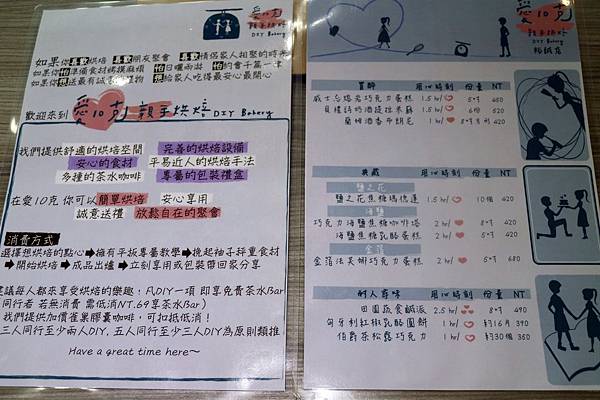 愛10克
親手烘焙
DIY Bakery
如果你喜歡烘焙 喜歡朋友聚會 喜歡情侶家人相聚的時光
如果你怕準備食材鍋擦麻煩 怕日曬雨淋 怕約會千篇一律
如果你想送最有誠意的禮物 想給家人吃得最安心最開心
歡迎來到 愛10克 親手烘焙 DIY Bakery
我們提供舒適的烘焙空間 完善的烘焙設備
安心的食材 平易近人的烘焙手法
多種的茶水咖啡 專屬的包裝禮盒
在愛10克 你可以 簡單烘焙 安心享用
誠意送禮 放鬆自在的聚會
消費方式
選擇想烘焙的點心➡擁有平板專屬教學➡挽起袖子秤重食材
➡開始烘焙➡成品出爐➡立刻享用或包裝帶回家分享
建議每人都來享受烘焙的樂趣，凡DIY一項 即享免費茶水Bar
同行者 若無消費 需低消NT.69享茶水Bar)
我們提供加價雀巢膠囊咖啡，可扣抵低消！
三人同行至少兩人DIY，五人同行至少三人DIY為原則類推
Have a great time here～
愛10克
親手烘焙
DIY Bakery
賞醉 用心時刻 份量 NT
威士忌熔岩巧克力蛋糕 1.5 hr/ 5吋 450
貝禮詩奶酒提拉米蘇 1.5 hr/ 6個 520
蘭姆酒香布朗尼 1 hr/ 420
典藏 用心時刻 份量 NT
鹽之花
鹽之花焦糖瑪德蓮 1.5 hr/ 10個 420
海鹽
巧克力海鹽焦糖咖啡塔 2 hr/ 8吋 450
海鹽焦糖乳酪蛋糕 2 hr/ 5吋 450
金箔
金箔法芙娜巧克力蛋糕 2 hr/ 5吋 680
耐人尋味 用心時刻 份量 NT
田園蔬食鹹派 2.5 hr/ 8吋 490
匈牙利紅椒乳酪圓餅 1 hr/ 約16片 390
伯爵茶松露巧克力 1 hr/ 約30個 360